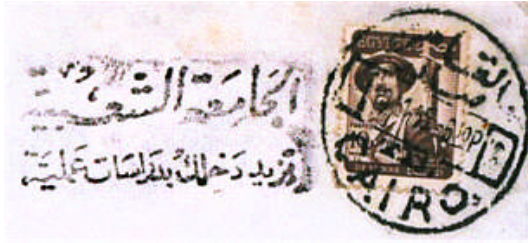 الجامعة الشعبية
تزيد دخلك بدراسات عملية
القاهرة
CAIRO